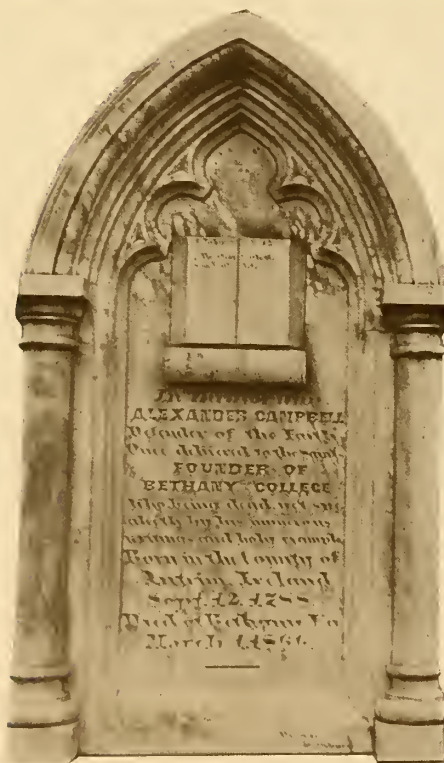 In memoriam
ALEXANDER CAMPBELL
Defender of the Faith
Once delivered to the Saints
FOUNDER OF
BETHANY COLLEGE
Who being dead yet spe
aketh by his numerous
writings and holy example
Born in the County of
Antrim Ireland
Sept. 12. 1788
Died at Bethany Va
March 4 1866